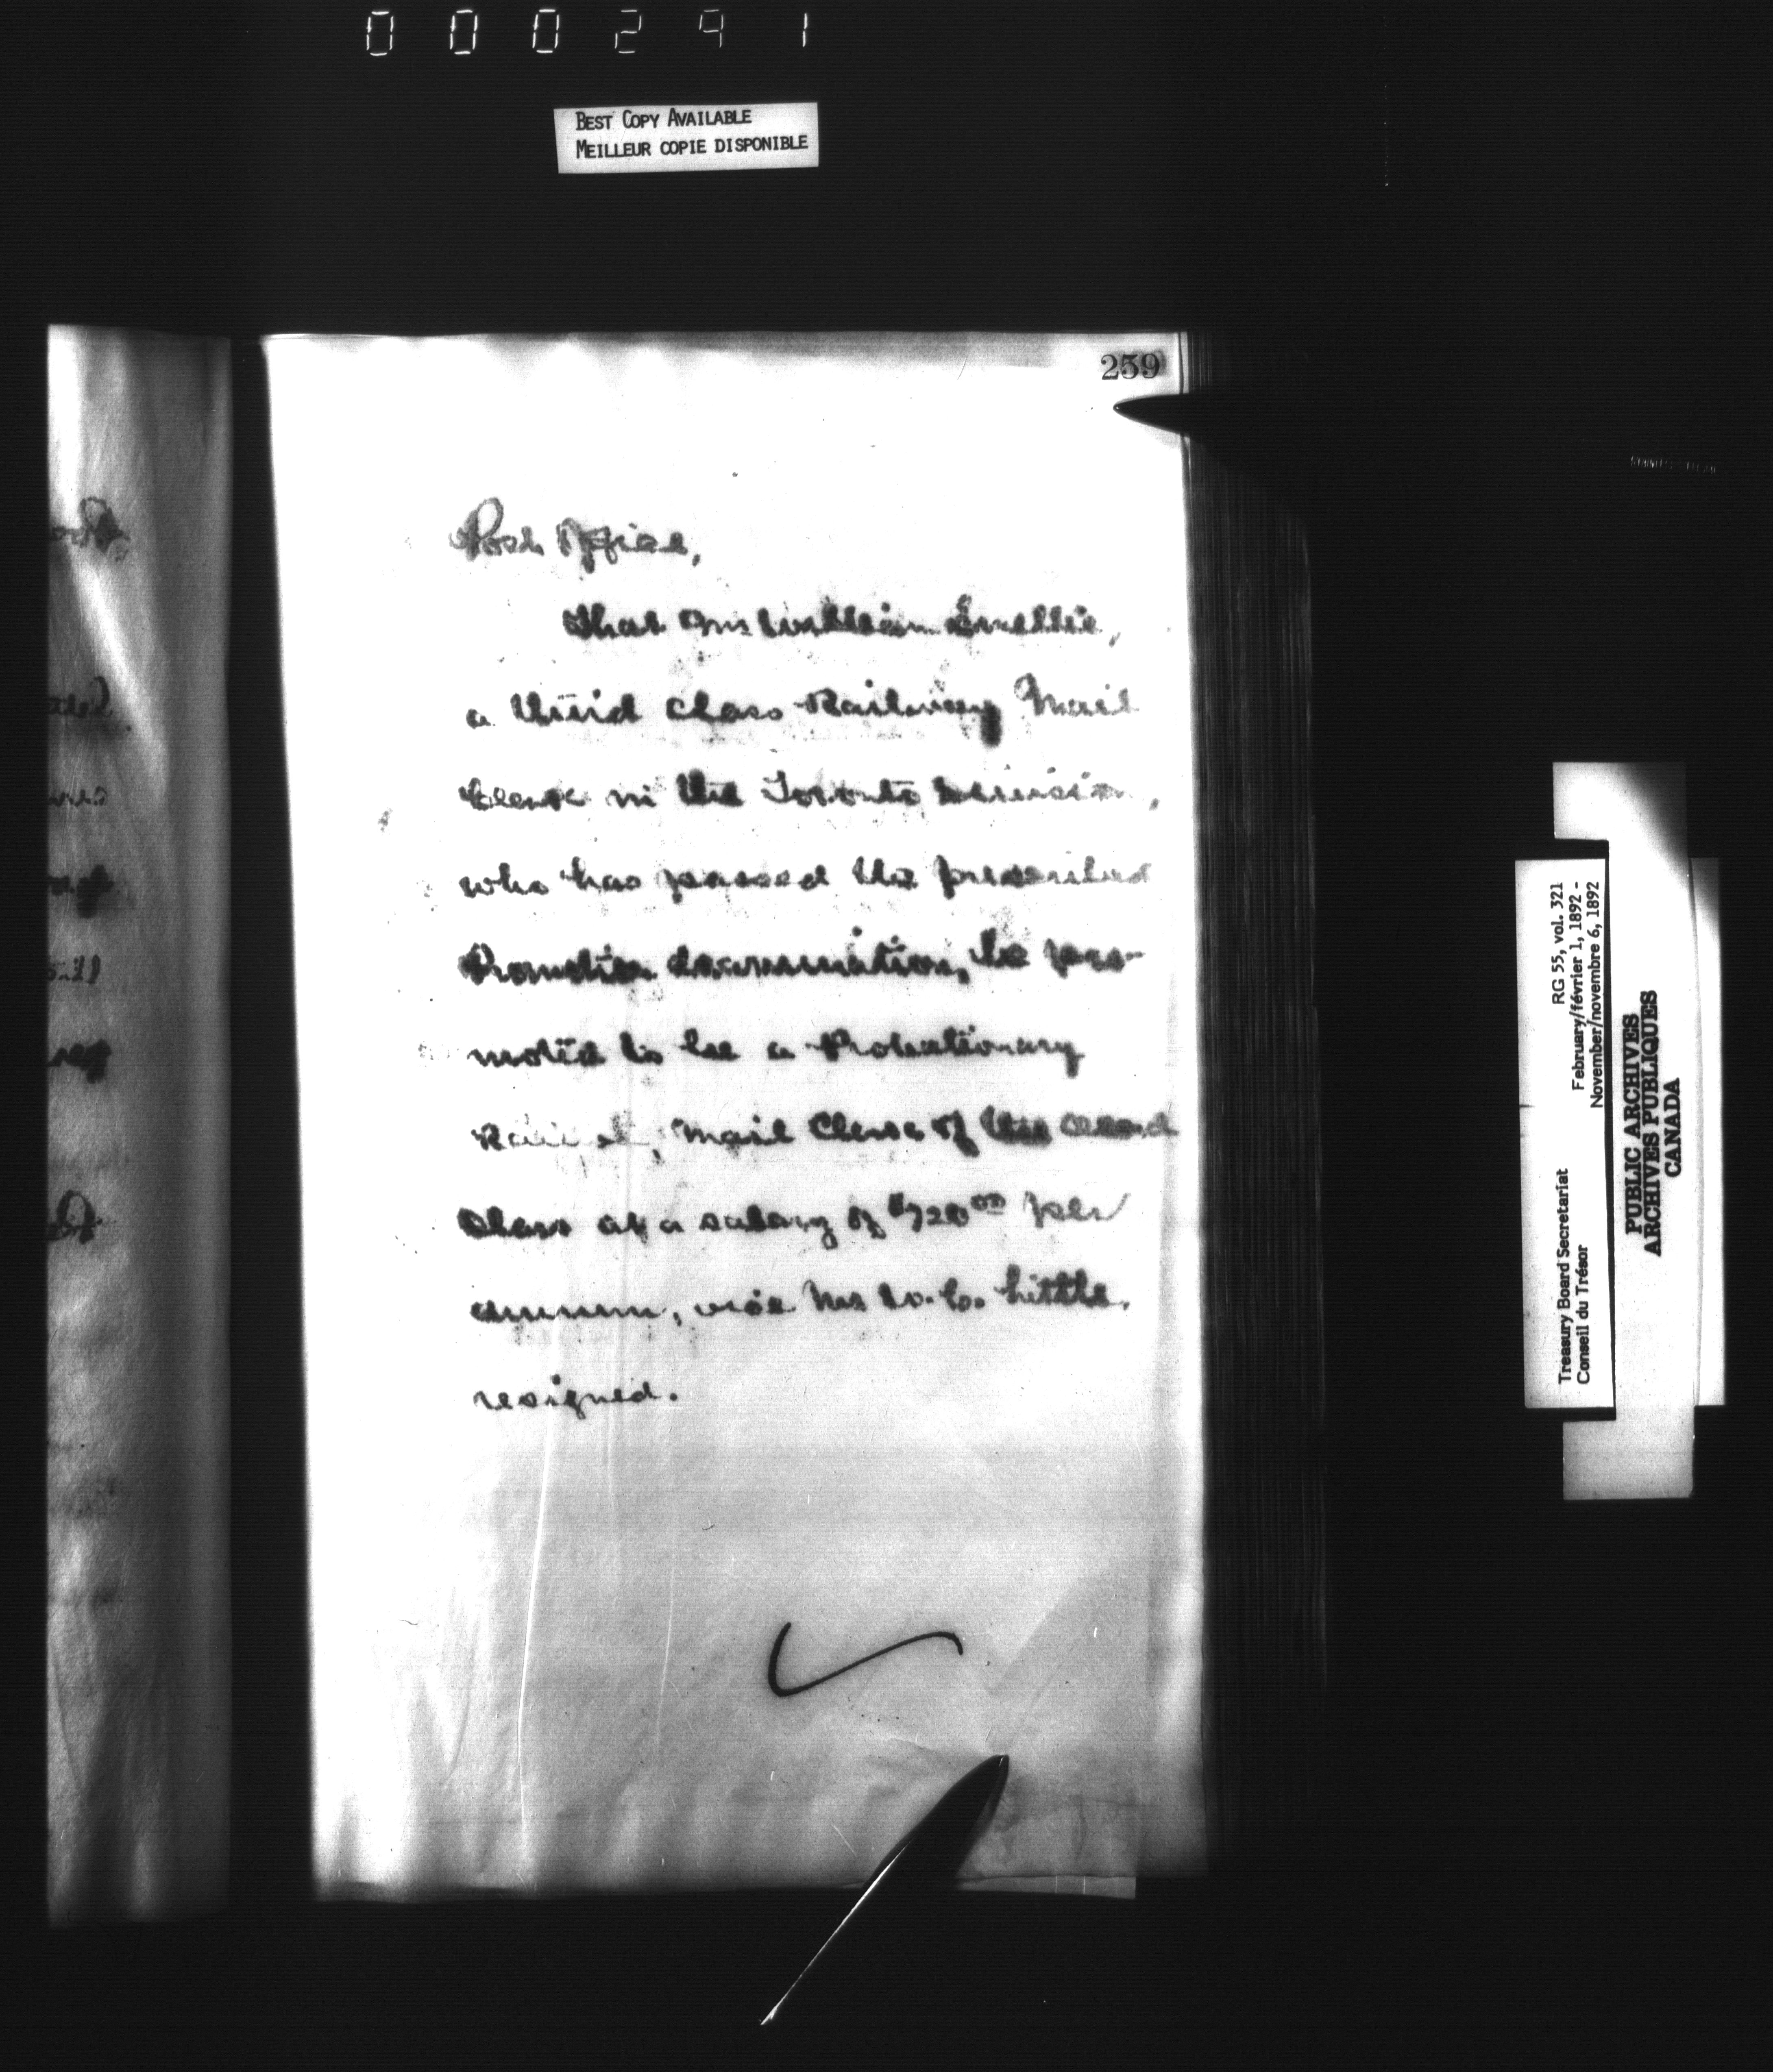 000291
BEST COPY AVAILABLE
MEILLEUR COPIE DISPONIBLE
259
Post Office,
That Mr William
a third class Railway Mail
Clerk in the Toronto Division,
who has passed the prescribed
Promotion Examination, be pro-
moted to be a Probationary
Mail Clerk of the second
Class at a salary of $720 00 per
annum, vice Mr W. C. Little,
resigned.
RG 55, vol. 321
February/février 1, 1892 -
November/novembre 6, 1892
Treasury Board Secretariat
Conseil du Trésor
PUBLIC ARCHIVES
ARCHIVES PUBLIQUES
CANADA